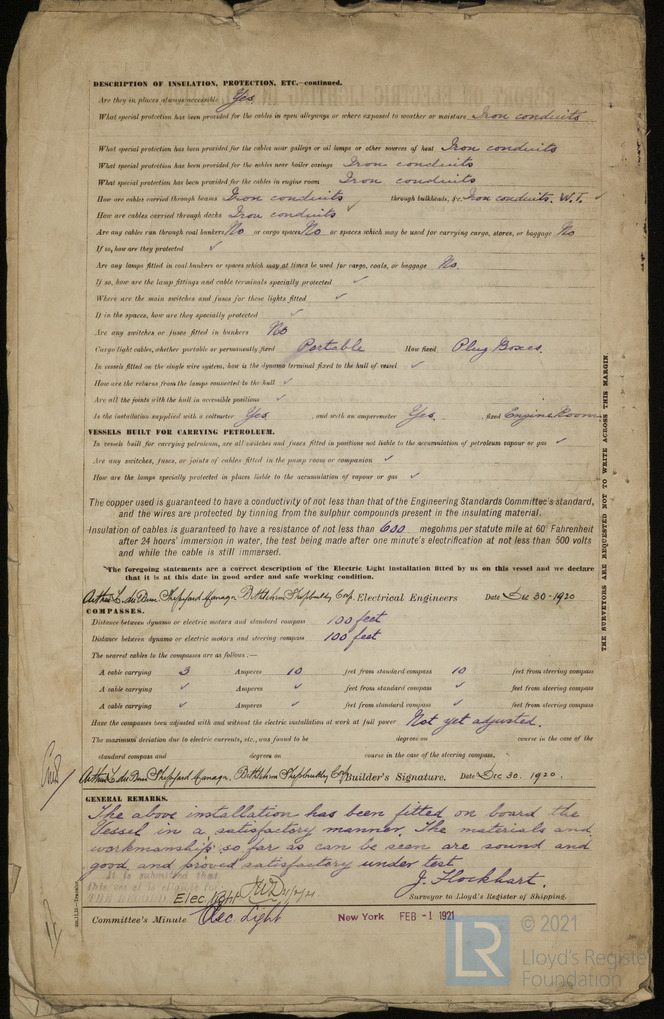 DESCRIPTION OF INSULATION, PROTECTION, ETC.—continued.
Are they in places always accessible Yes
What special protection has been provided for the cables in open alleyways or where exposed to weather or moisture Iron conduits
What special protection has been provided for the cables near galleys or oil lamps or other sources of heat Iron conduits
What special protection has been provided for the cables near boiler casings Iron conduits
What special protection has been provided for the cables in engine room Iron conduits
How are cables carried through beams Iron conduits through bulkheads, &c. Iron conduits. W.T. ✓
How are cables carried through decks Iron conduits ✓
Are any cables run through coal bunkers No or cargo spaces No or spaces which may be used for carrying cargo, stores, or baggage No
If so, how are they protected ✓
Are any lamps fitted in coal bunkers or spaces which may at times be used for cargo, coals, or baggage No.
If so, how are the lamp fittings and cable terminals specially protected ✓
Where are the main switches and fuses for these lights fitted ✓
If in the spaces, how are they specially protected ✓
Are any switches or fuses fitted in bunkers No
Cargo light cables, whether portable or permanently fixed Portable How fixed Plug Boxes.
In vessels fitted on the single wire system, how is the dynamo terminal fixed to the hull of vessel ✓
How are the returns from the lamps connected to the hull ✓
Are all the joints with the hull in accessible positions ✓
Is the installation supplied with a voltmeter Yes , and with an amperemeter Yes , fixed Engine Room
VESSELS BUILT FOR CARRYING PETROLEUM.
In vessels built for carrying petroleum, are all switches and fuses fitted in positions not liable to the accumulation of petroleum vapour or gas ✓
Are any switches, fuses, or joints of cables fitted in the pump room or companion ✓
How are the lamps specially protected in places liable to the accumulation of vapour or gas ✓
The copper used is guaranteed to have a conductivity of not less than that of the Engineering Standards Committee's standard,
and the wires are protected by tinning from the sulphur compounds present in the insulating material.
Insulation of cables is guaranteed to have a resistance of not less than 600 megohms per statute mile at 60° Fahrenheit
after 24 hours' immersion in water, the test being made after one minute's electrification at not less than 500 volts
and while the cable is still immersed.
The foregoing statements are a correct description of the Electric Light installation fitted by us on this vessel and we declare
that it is at this date in good order and safe working condition.
Manager, Bethlehem Shipbuilding Corp. Electrical Engineers Date Dec 30-1920
COMPASSES.
Distance between dynamo or electric motors and standard compass 100 feet
Distance between dynamo or electric motors and steering compass 100 feet
The nearest cables to the compasses are as follows:—
A cable carrying 3 Amperes 10 feet from standard compass 10 feet from steering compass
A cable carrying ✓ Amperes ✓ feet from standard compass ✓ feet from steering compass
A cable carrying ✓ Amperes ✓ feet from standard compass ✓ feet from steering compass
Have the compasses been adjusted with and without the electric installation at work at full power Not yet adjusted.
The maximum deviation due to electric currents, etc., was found to be degrees on course in the case of the
standard compass and degrees on course in the case of the steering compass.
Manager, Bethlehem Shipbuilding Corp Builder's Signature. Date Dec 30. 1920.
GENERAL REMARKS.
The above installation has been fitted on board the
Vessel in a satisfactory manner. The materials and
workmanship so far as can be seen are sound and
good and proved satisfactory under test
It is submitted that
this vessel is eligible for
THE RECORD Elec. Light
J. Flockhart.
Surveyor to Lloyd's Register of Shipping.
Committee's Minute Elec. Light New York FEB -1 1921
THE SURVEYORS ARE REQUESTED NOT TO WRITE ACROSS THIS MARGIN.
© 2021
LR Lloyd's Register
Foundation